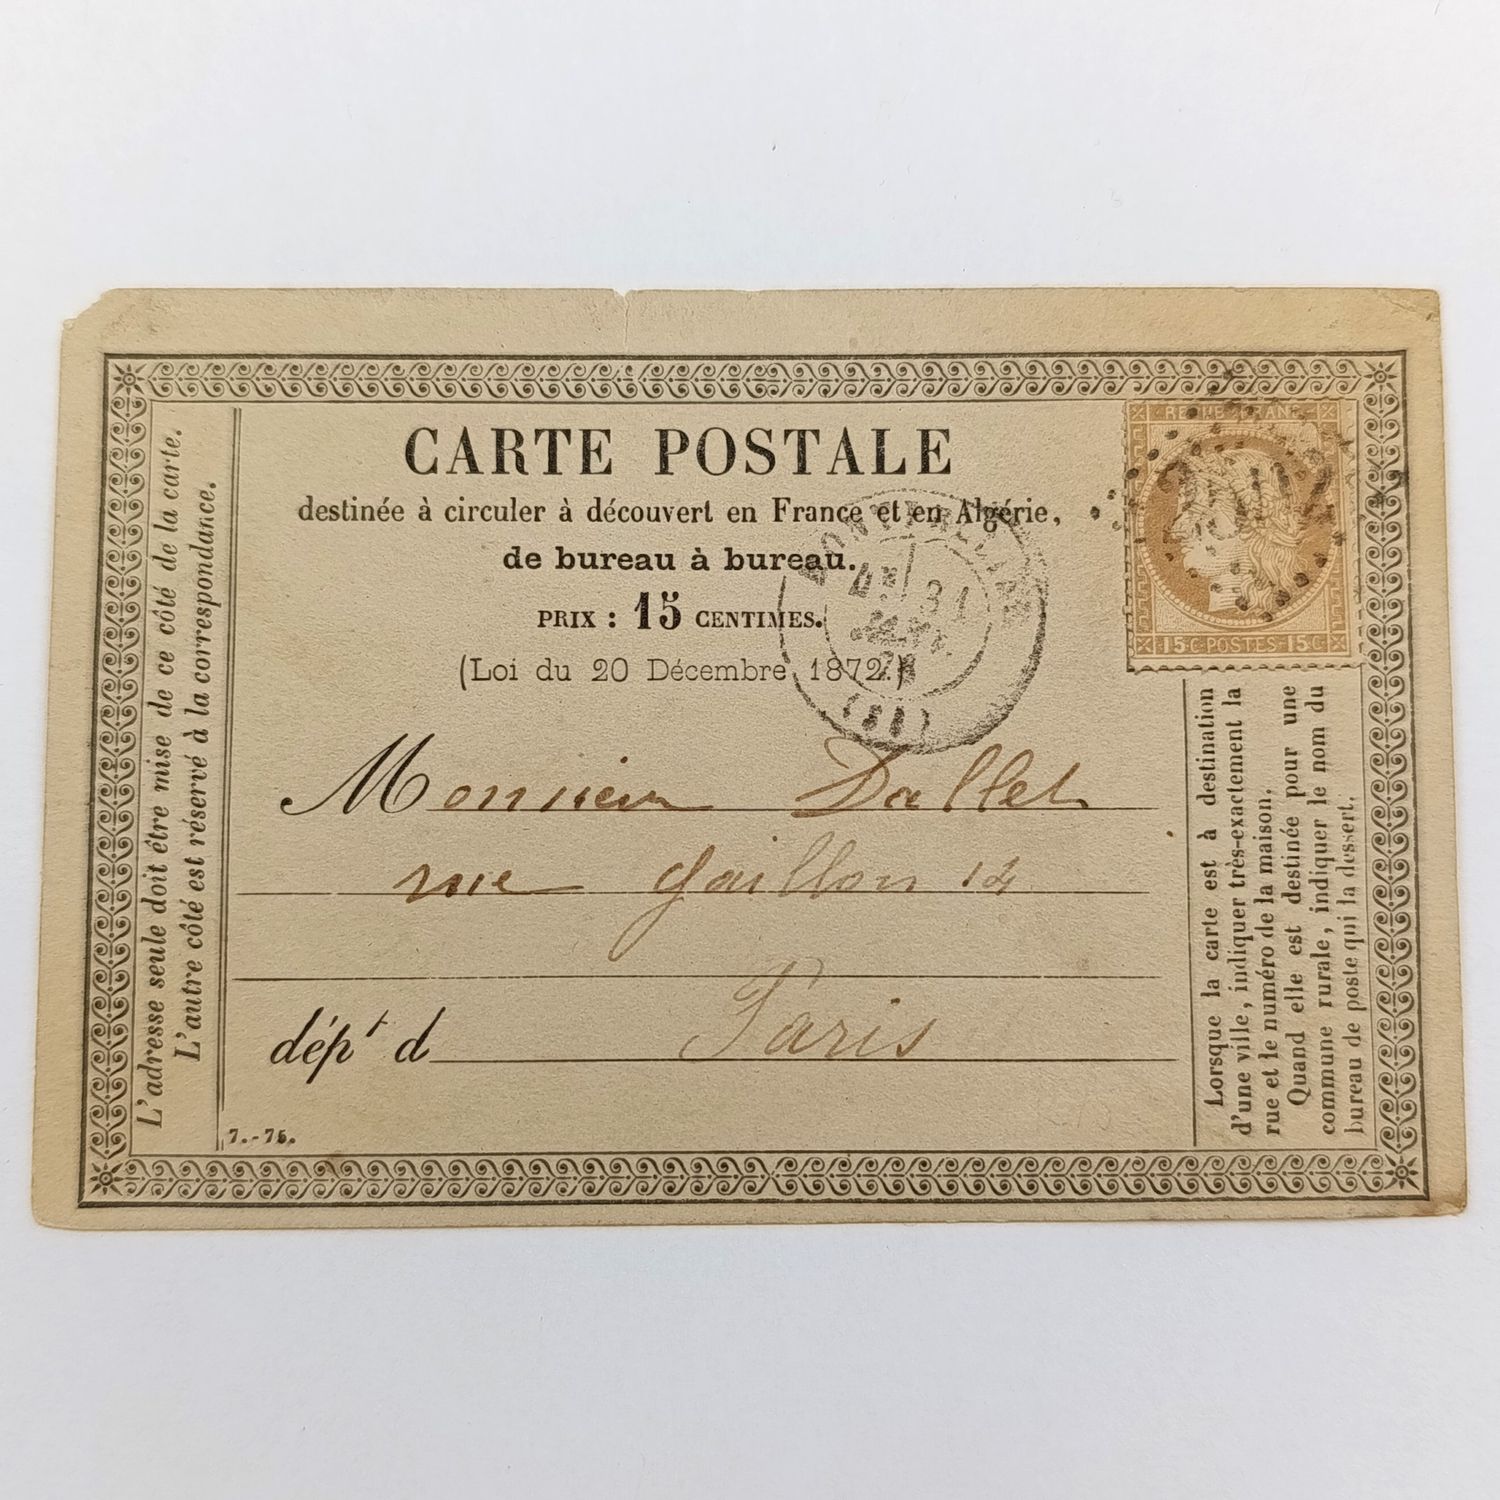 CARTE POSTALE
destinée à circuler à découvert en France et en Algérie,
de bureau à bureau.
PRIX : 15 CENTIMES.
(Loi du 20 Décembre 1872.)
REPUB FRANC
15 C POSTES 15 C
31
Monsieur Dallet
rue Gaillon 12
Paris
dépt d
7.-75.
L'adresse seule doit être mise de ce côté de la carte.
L'autre côté est réservé à la correspondance.
Lorsque la carte est à destination
d'une ville, indiquer très-exactement la
rue et le numéro de la maison.
Quand elle est destinée pour une
commune rurale, indiquer le nom du
bureau de poste qui la dessert.